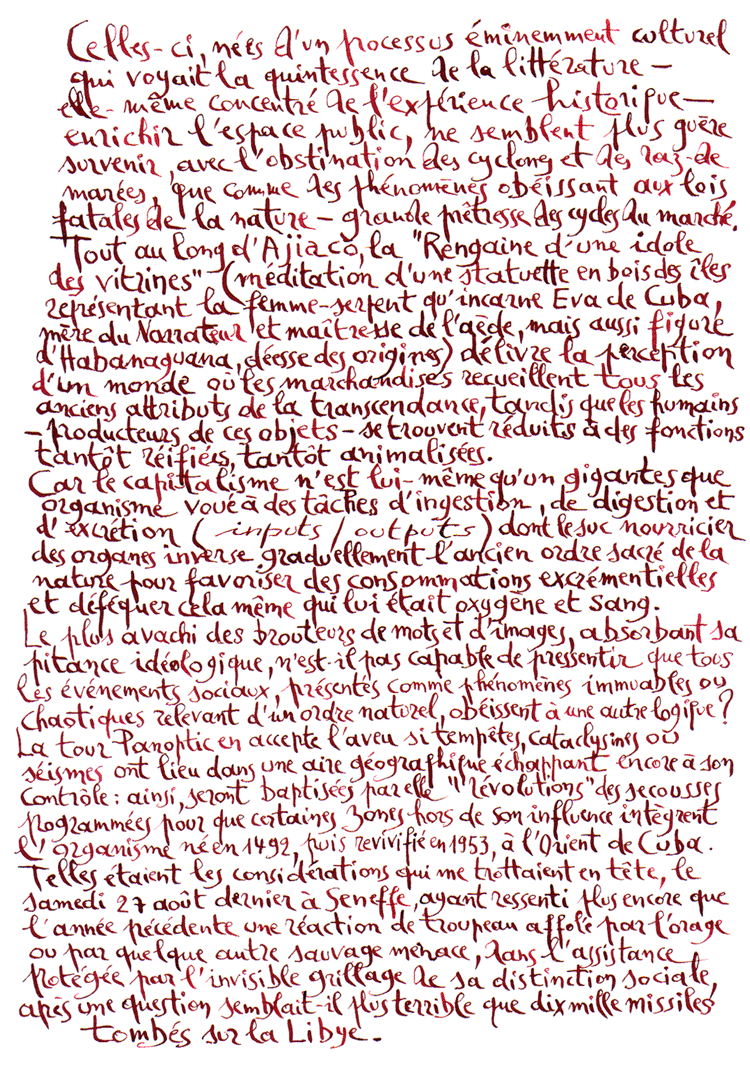 Celles-ci, nées d'un processus éminemment culturel
qui voyait la quintessence de la littérature –
elle-même concentré de l'expérience historique –
enrichir l'espace public, ne semblent plus guère
survenir, avec l'obstination des cyclones et des raz-de
marées, que comme des phénomènes obéissant aux lois
fatales de la nature – grande prêtresse des cycles du marché.
Tout au long d'Ajiaco, la "Rengaine d'une idole
des vitrines" (méditation d'une statuette en bois des îles
représentant la femme-serpent qu'incarne Eva de Cuba,
mère du Narrateur et maîtresse de l'aède, mais aussi figure
d'Habanaguana, déesse des origines) délivre la perception
d'un monde où les marchandises recueillent tous les
anciens attributs de la transcendance, tandis que les humains
– producteurs de ces objets – se trouvent réduits à des fonctions
tantôt réifiées, tantôt animalisées.
Car le capitalisme n'est lui-même qu'un gigantesque
organisme voué à des tâches d'ingestion, de digestion et
d'excrétion (inputs / outputs) dont le suc nourricier
des organes inverse graduellement l'ancien ordre sacré de la
nature pour favoriser des consommations excrémentielles
et déféquer cela même qui lui était oxygène et sang.
Le plus avachi des brouteurs de mots et d'images, absorbant sa
pitance idéologique, n'est-il pas capable de pressentir que tous
les événements sociaux, présentés comme phénomènes immuables ou
chaotiques relevant d'un ordre naturel, obéissent à une autre logique ?
La tour Panoptic en accepte l'aveu si tempêtes, cataclysmes ou
séismes ont lieu dans une aire géographique échappant encore à son
contrôle : ainsi, seront baptisées par elle "révolutions" des secousses
programmées pour que certaines zones hors de son influence intègrent
l'organisme né en 1492, puis revivifié en 1953, à l'Orient de Cuba.
Telles étaient les considérations qui me trottaient en tête, le
samedi 27 août dernier à Seneffe, ayant ressenti plus encore que
l'année précédente une réaction de troupeau affolé par l'orage
ou par quelque autre sauvage menace, dans l'assistance
protégée par l'invisible grillage de sa distinction sociale,
après une question semblait-il plus terrible que dix mille missiles
tombés sur la Libye.